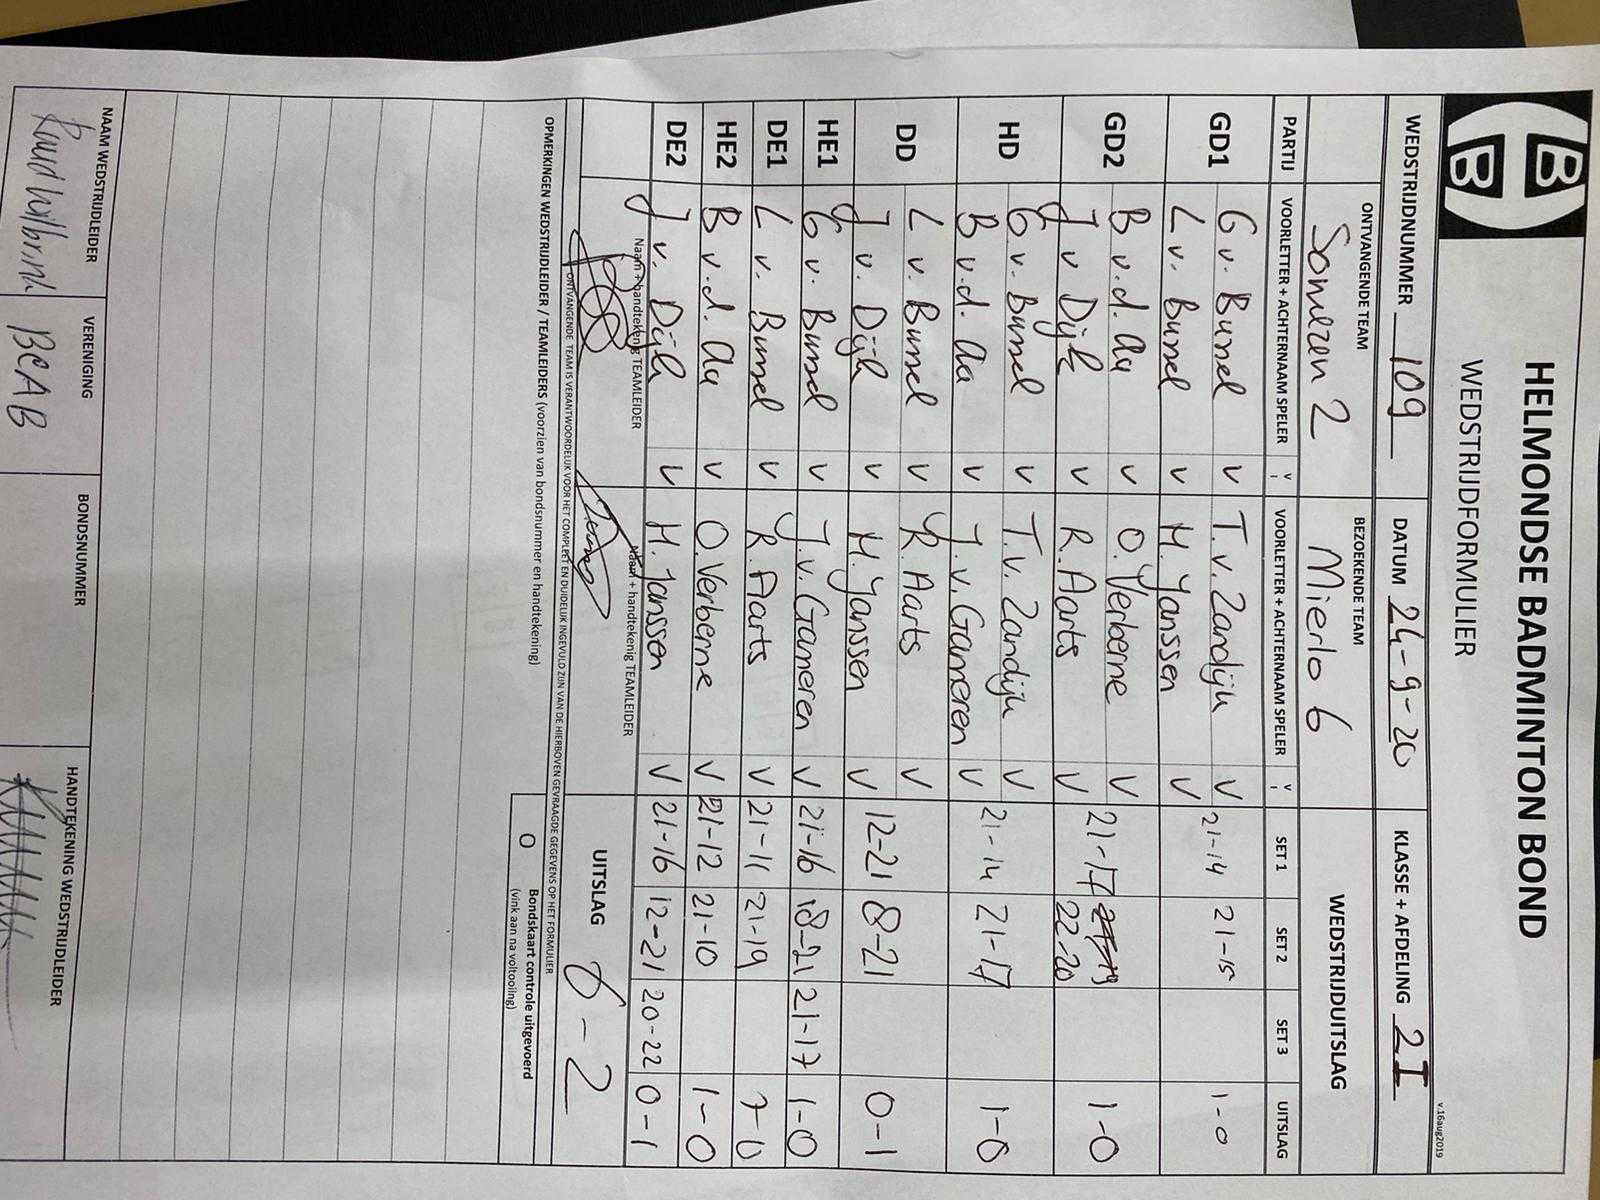 HELMONDSE BADMINTON BOND
WEDSTRIJDFORMULIER
v.16aug2019
WEDSTRIJDNUMMER 109 DATUM 24-9-20 KLASSE + AFDELING 2I
ONTVANGENDE TEAM BEZOEKENDE TEAM WEDSTRIJDUITSLAG
Someren 2 Mierlo 6
PARTIJ VOORLETTER + ACHTERNAAM SPELER V VOORLETTER + ACHTERNAAM SPELER V SET 1 SET 2 SET 3 UITSLAG
GD1 G v. Bussel V T. v. Zandijk V 21-14 21-15 1-0
L v. Bussel V M. Janssen V
GD2 B v.d. Aa V O. Verberne V 21-17 22-20 1-0
J v Dijk V R. Aarts V
HD G v. Bussel V T. v. Zandijk V 21-14 21-17 1-0
B v.d. Aa V J. v. Gameren V
DD L v. Bussel V R. Aarts V 12-21 8-21 0-1
J v. Dijk V M. Janssen V
HE1 G v. Bussel V J. v. Gameren V 21-16 18-21 21-17 1-0
DE1 L v. Bussel V R. Aarts V 21-11 21-19 1-0
HE2 B v.d. Aa V O. Verberne V 21-12 21-10 1-0
DE2 J v. Dijk V M. Janssen V 21-16 12-21 20-22 0-1
Naam + handtekenig TEAMLEIDER Naam + handtekenig TEAMLEIDER UITSLAG 6-2
ONTVANGENDE TEAM IS VERANTWOORDELIJK VOOR HET COMPLEET EN DUIDELIJK INGEVULD ZIJN VAN DE HIERBOVEN GEVRAAGDE GEGEVENS OP HET FORMULIER
OPMERKINGEN WEDSTRIJDLEIDER / TEAMLEIDERS (voorzien van bondsnummer en handtekening)
O Bondskaart controle uitgevoerd
(vink aan na voltooiing)
NAAM WEDSTRIJDLEIDER VERENIGING BONDSNUMMER HANDTEKENING WEDSTRIJDLEIDER
Ruud Wilbrink BCAB